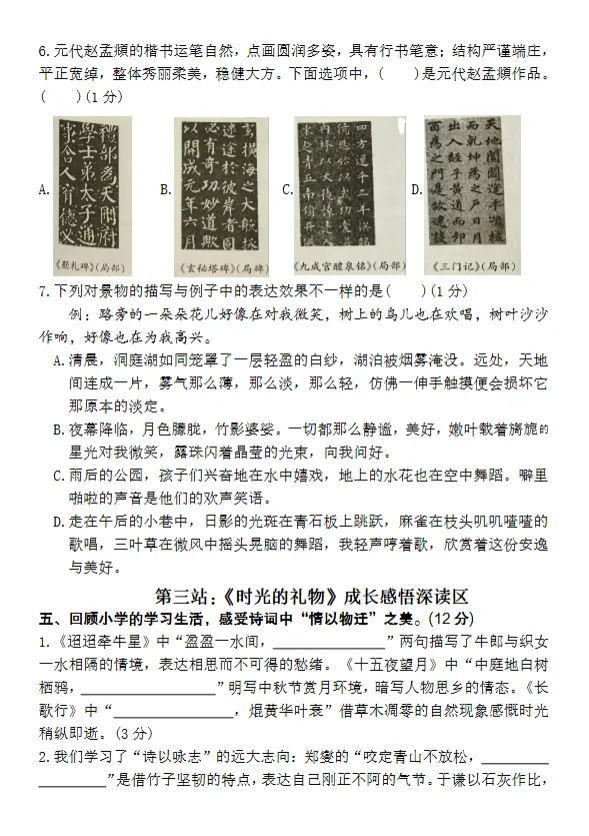 6.元代赵孟頫的楷书运笔自然，点画圆润多姿，具有行书笔意；结构严谨端庄，
平正宽绰，整体秀丽柔美，稳健大方。下面选项中，(　　)是元代赵孟頫作品。
(　　)(1分)
A.
為天冊府
學士弟太子通
事舍人
《勤礼碑》(局部)
B.
玄橫海之大航拯
迷途於彼岸者固
必有奇功妙道歟
以開成元年六月
《玄秘塔碑》(局部)
C.
《九成宫醴泉铭》(局部)
D.
天地闔闢運乎樞紐
而乾坤為之戶日月
出入經乎黃道而卯
酉為之門是故建設
《三门记》(局部)
7.下列对景物的描写与例子中的表达效果不一样的是(　　)(1分)
例：路旁的一朵朵花儿好像在对我微笑，树上的鸟儿也在欢唱，树叶沙沙
作响，好像也在为我高兴。
A.清晨，洞庭湖如同笼罩了一层轻盈的白纱，湖泊被烟雾淹没。远处，天地
间连成一片，雾气那么薄，那么淡，那么轻，仿佛一伸手触摸便会损坏它
那原本的淡定。
B.夜幕降临，月色朦胧，竹影婆娑。一切都那么静谧，美好，嫩叶载着旖旎的
星光对我微笑，露珠闪着晶莹的光束，向我问好。
C.雨后的公园，孩子们兴奋地在水中嬉戏，地上的水花也在空中舞蹈。噼里
啪啦的声音是他们的欢声笑语。
D.走在午后的小巷中，日影的光斑在青石板上跳跃，麻雀在枝头叽叽喳喳的
歌唱，三叶草在微风中摇头晃脑的舞蹈，我轻声哼着歌，欣赏着这份安逸
与美好。
第三站：《时光的礼物》成长感悟深读区
五、回顾小学的学习生活，感受诗词中“情以物迁”之美。(12分)
1.《迢迢牵牛星》中“盈盈一水间，＿＿＿＿＿＿＿＿”两句描写了牛郎与织女
一水相隔的情境，表达相思而不可得的愁绪。《十五夜望月》中“中庭地白树
栖鸦，＿＿＿＿＿＿＿＿＿＿”明写中秋节赏月环境，暗写人物思乡的情态。《长
歌行》中“＿＿＿＿＿＿＿＿＿，焜黄华叶衰”借草木凋零的自然现象感慨时光
稍纵即逝。(3分)
2.我们学习了“诗以咏志”的远大志向：郑燮的“咬定青山不放松，＿＿＿＿＿
＿＿＿＿＿”是借竹子坚韧的特点，表达自己刚正不阿的气节。于谦以石灰作比，